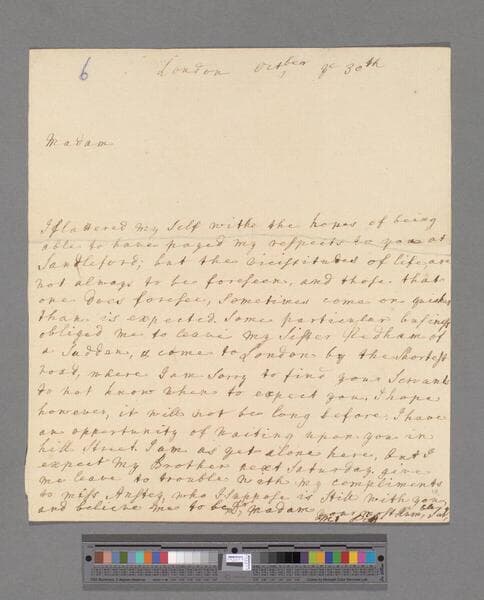 6
London Octber ye 30th
Madam
I flattered my Self withe the hopes of being
able to have payed my respects to you at
Sandleford; but the Vicissitudes of life are
not always to be foreseen, and those that
one does foresee, Sometimes come on quicker
than is expected. Some particular business
obliged me to leave my Sister Needham of
a Sudden, & come to London by the Shortest
road, where I am Sorry to find your Servants
do not know when to expect you, I hope
however, it will not be long before I have
an opportunity of waiting upon you in
hill Street. I am as yet alone here, but I
expect My Brother next Saturday. give
me leave to trouble with my compliments
to Miss Anstey, who I suppose is Still with you,
and believe me to be Dr Madam
your most Hum ble Sert